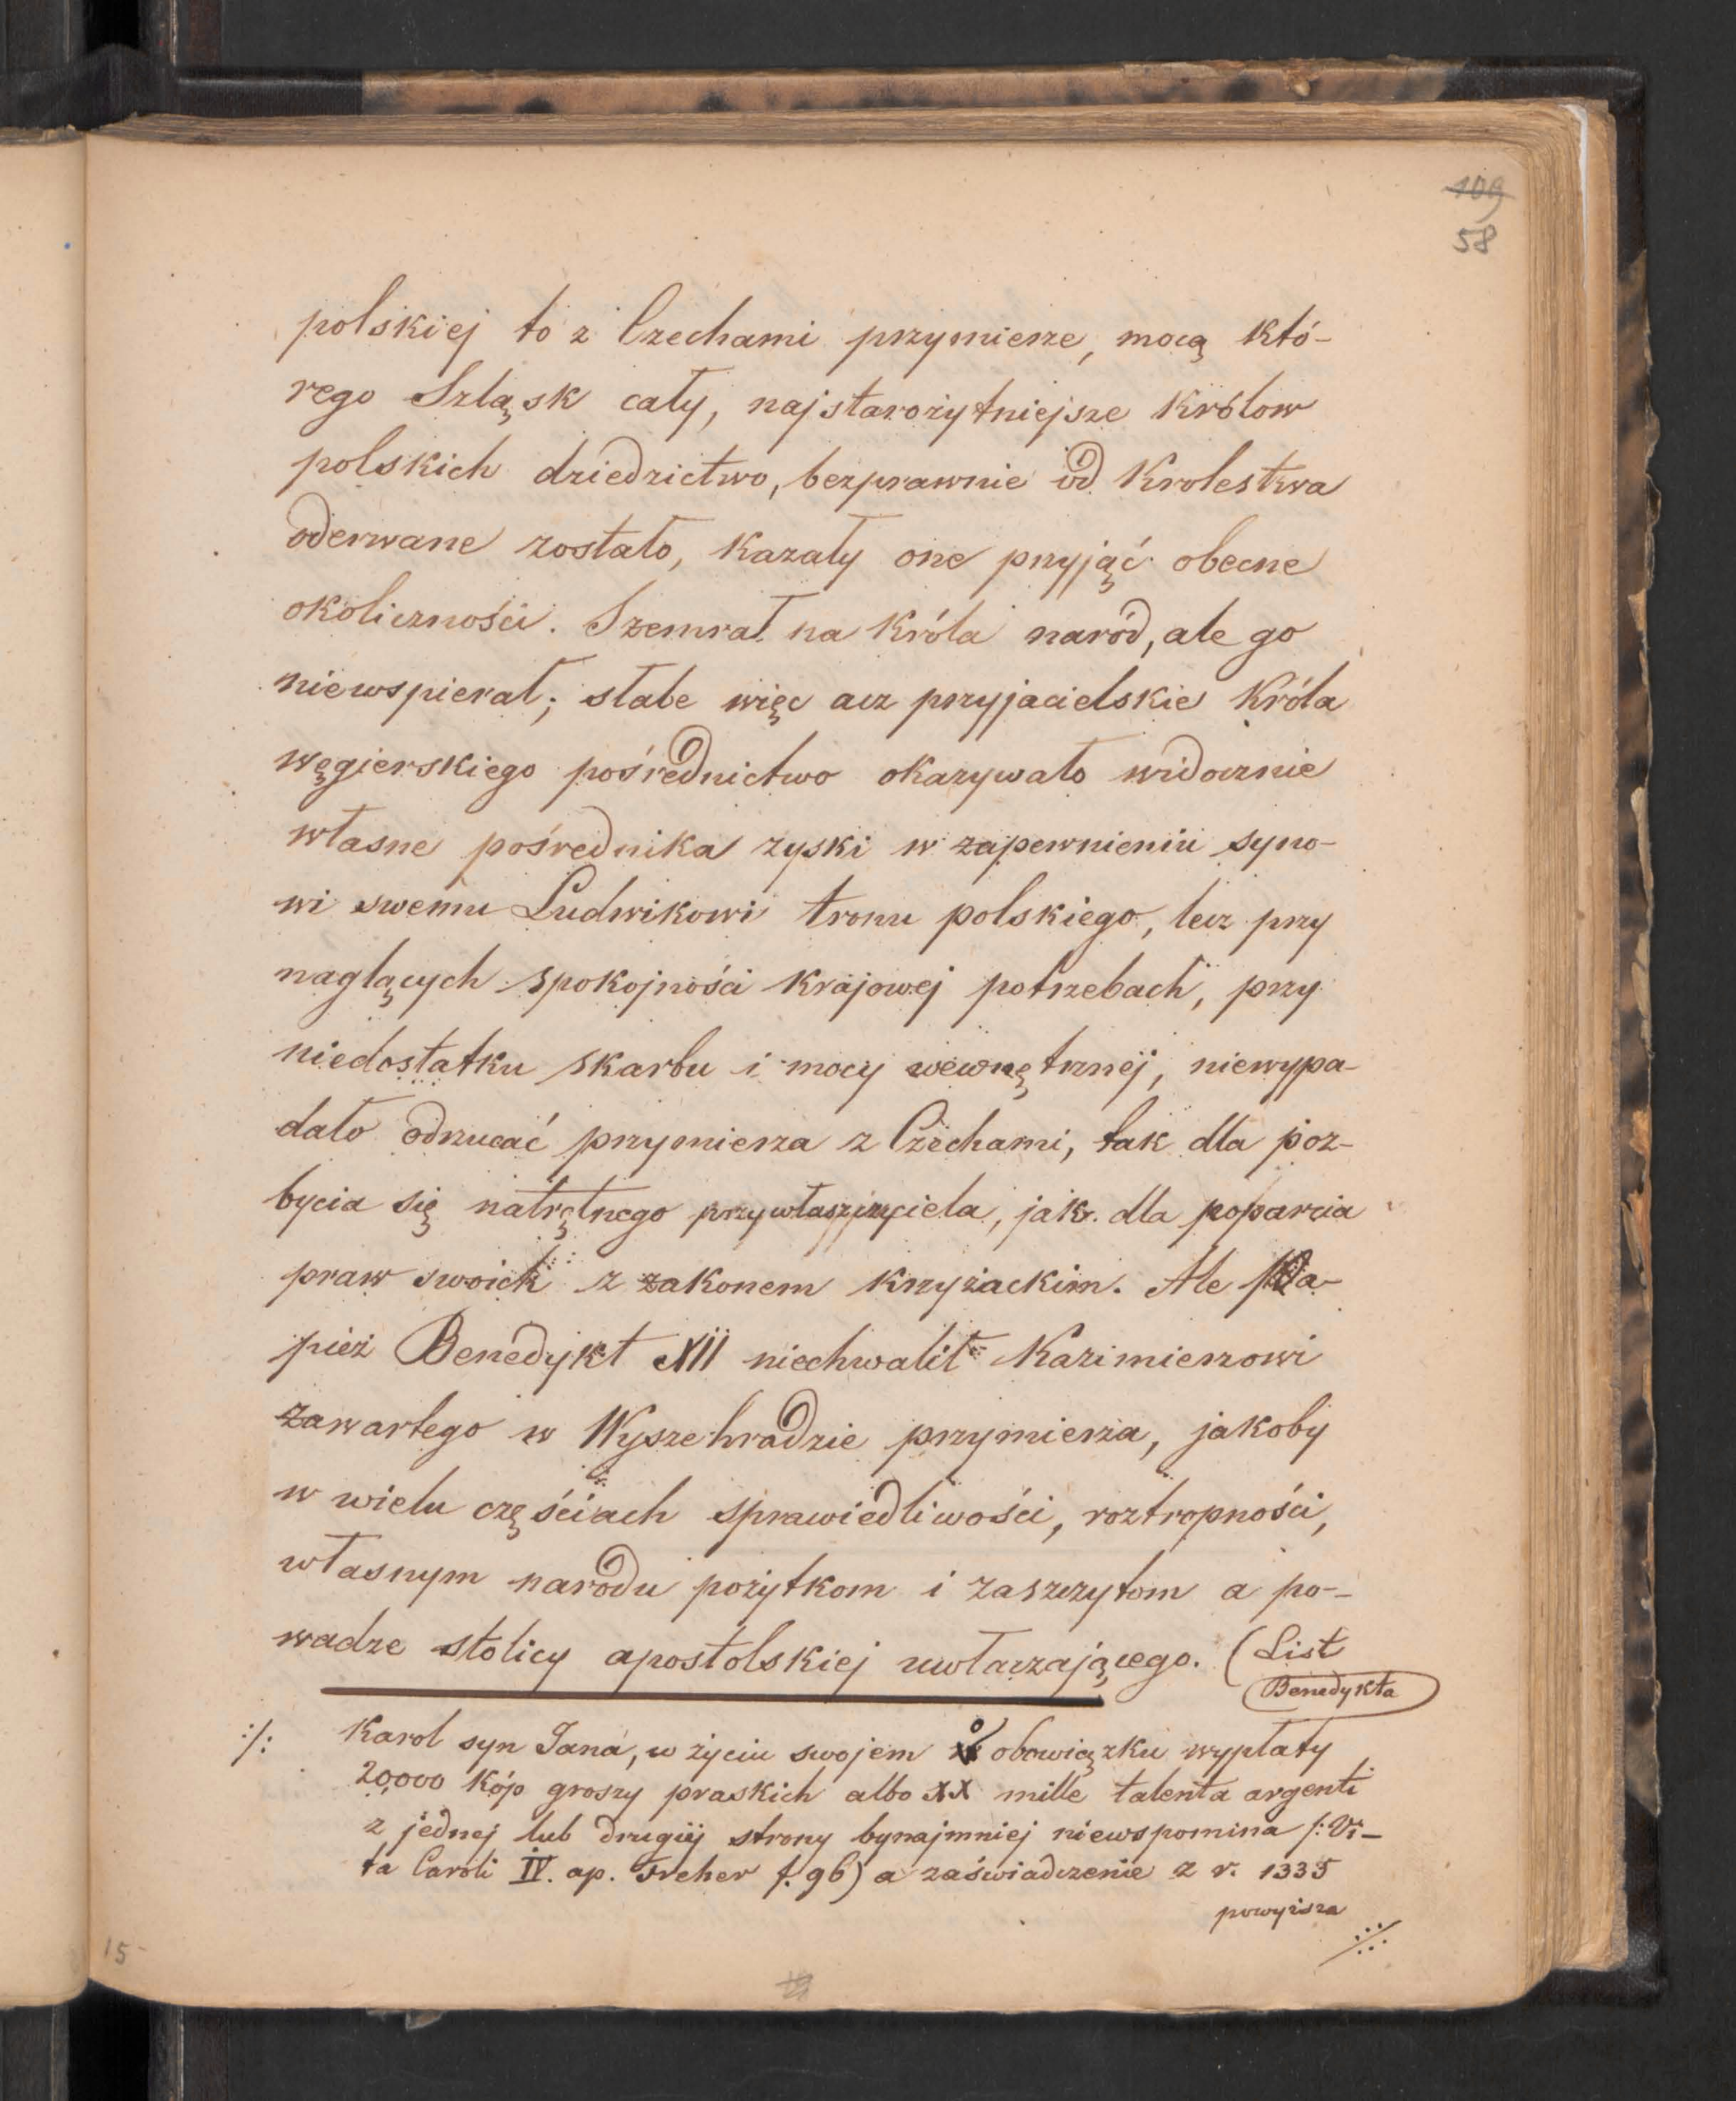 109
58
polskiej to z Czechami przymierze, mocą któ-
rego Szląsk cały, najstarożytniejsze królow
polskich dziedzictwo, bezprawnie od Krolestwa
oderwane zostało, kazały one przyjąć obecne
okoliczności. Szemrał na króla naród, ale go
niewspierał; słabe więc acz przyjacielskie króla
węgierskiego pośrednictwo okazywało widocznie
własne pośrednika zyski w zapewnieniu syno-
wi swemu Ludwikowi tronu polskiego, lecz przy
naglących spokojności krajowej potrzebach, przy
niedostatku skarbu i mocy wewnętrznej, niewypa-
dało odrzucać przymierza z Czechami, tak dla poz-
bycia się natrętnego przywłaszczyciela, jak dla poparcia
praw swoich z zakonem krzyżackim. Ale Pa-
pież Benedykt XII niechwalił Kazimierzowi
zawartego w Wyszehradzie przymierza, jakoby
w wielu częściach sprawiedliwości, roztropności,
własnym narodu pożytkom i zaszczytom a po-
wadze stolicy apostolskiej uwłaczającego. (List
Benedykta
:/: Karol syn Jana, w życiu swojem o obowiązku wypłaty
20,000 kóp groszy praskich albo XX mille talenta argenti
z jednej lub drugiej strony bynajmniej niewspomina /: Vi-
ta Caroli IV. ap. Freher f. 96) a zaświadczenie z r. 1335
powyższa
15